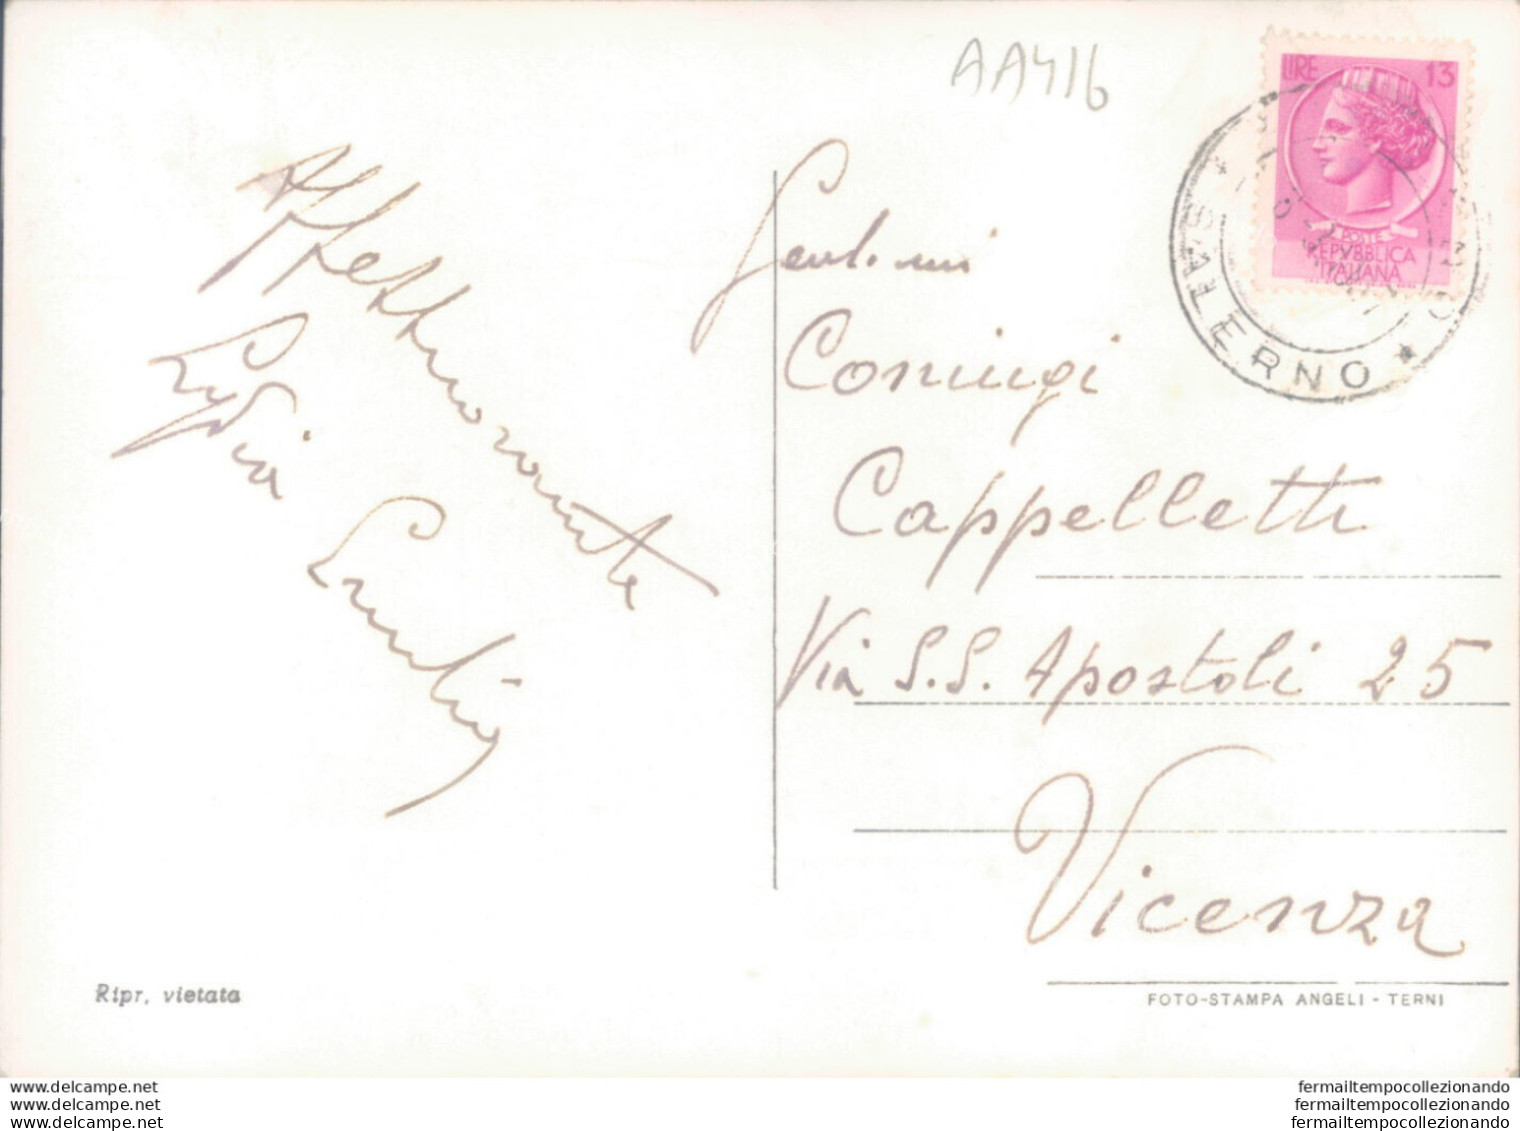 AA416
LIRE 13
POSTE
REPVBBLICA
ITALIANA
SALTERNO
Affettuosamente
Lydia
Gent.mi
Coniugi
Cappelletti
Via S.S. Apostoli 25
Vicenza
Ripr. vietata
FOTO-STAMPA ANGELI - TERNI
www.delcampe.net
www.delcampe.net
www.delcampe.net
fermailtempocollezionando
fermailtempocollezionando
fermailtempocollezionando